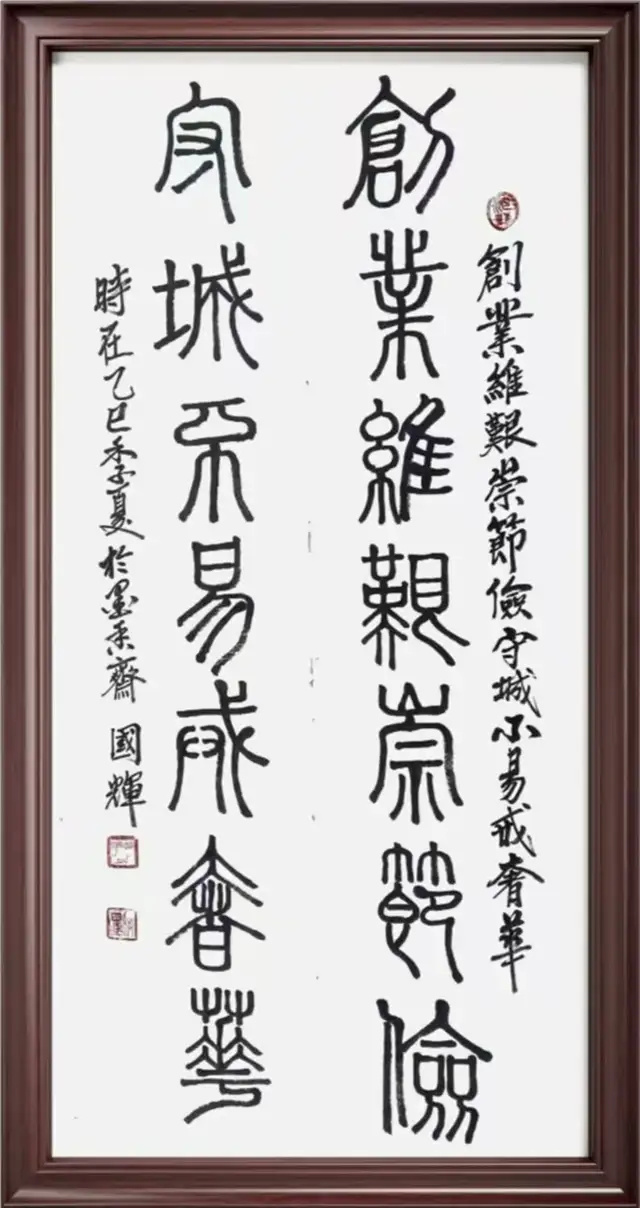 創業維艱崇節儉守城不易戒奢華
創業維艱崇節儉
守城不易戒奢華
時在乙巳季夏於墨香齋 國輝